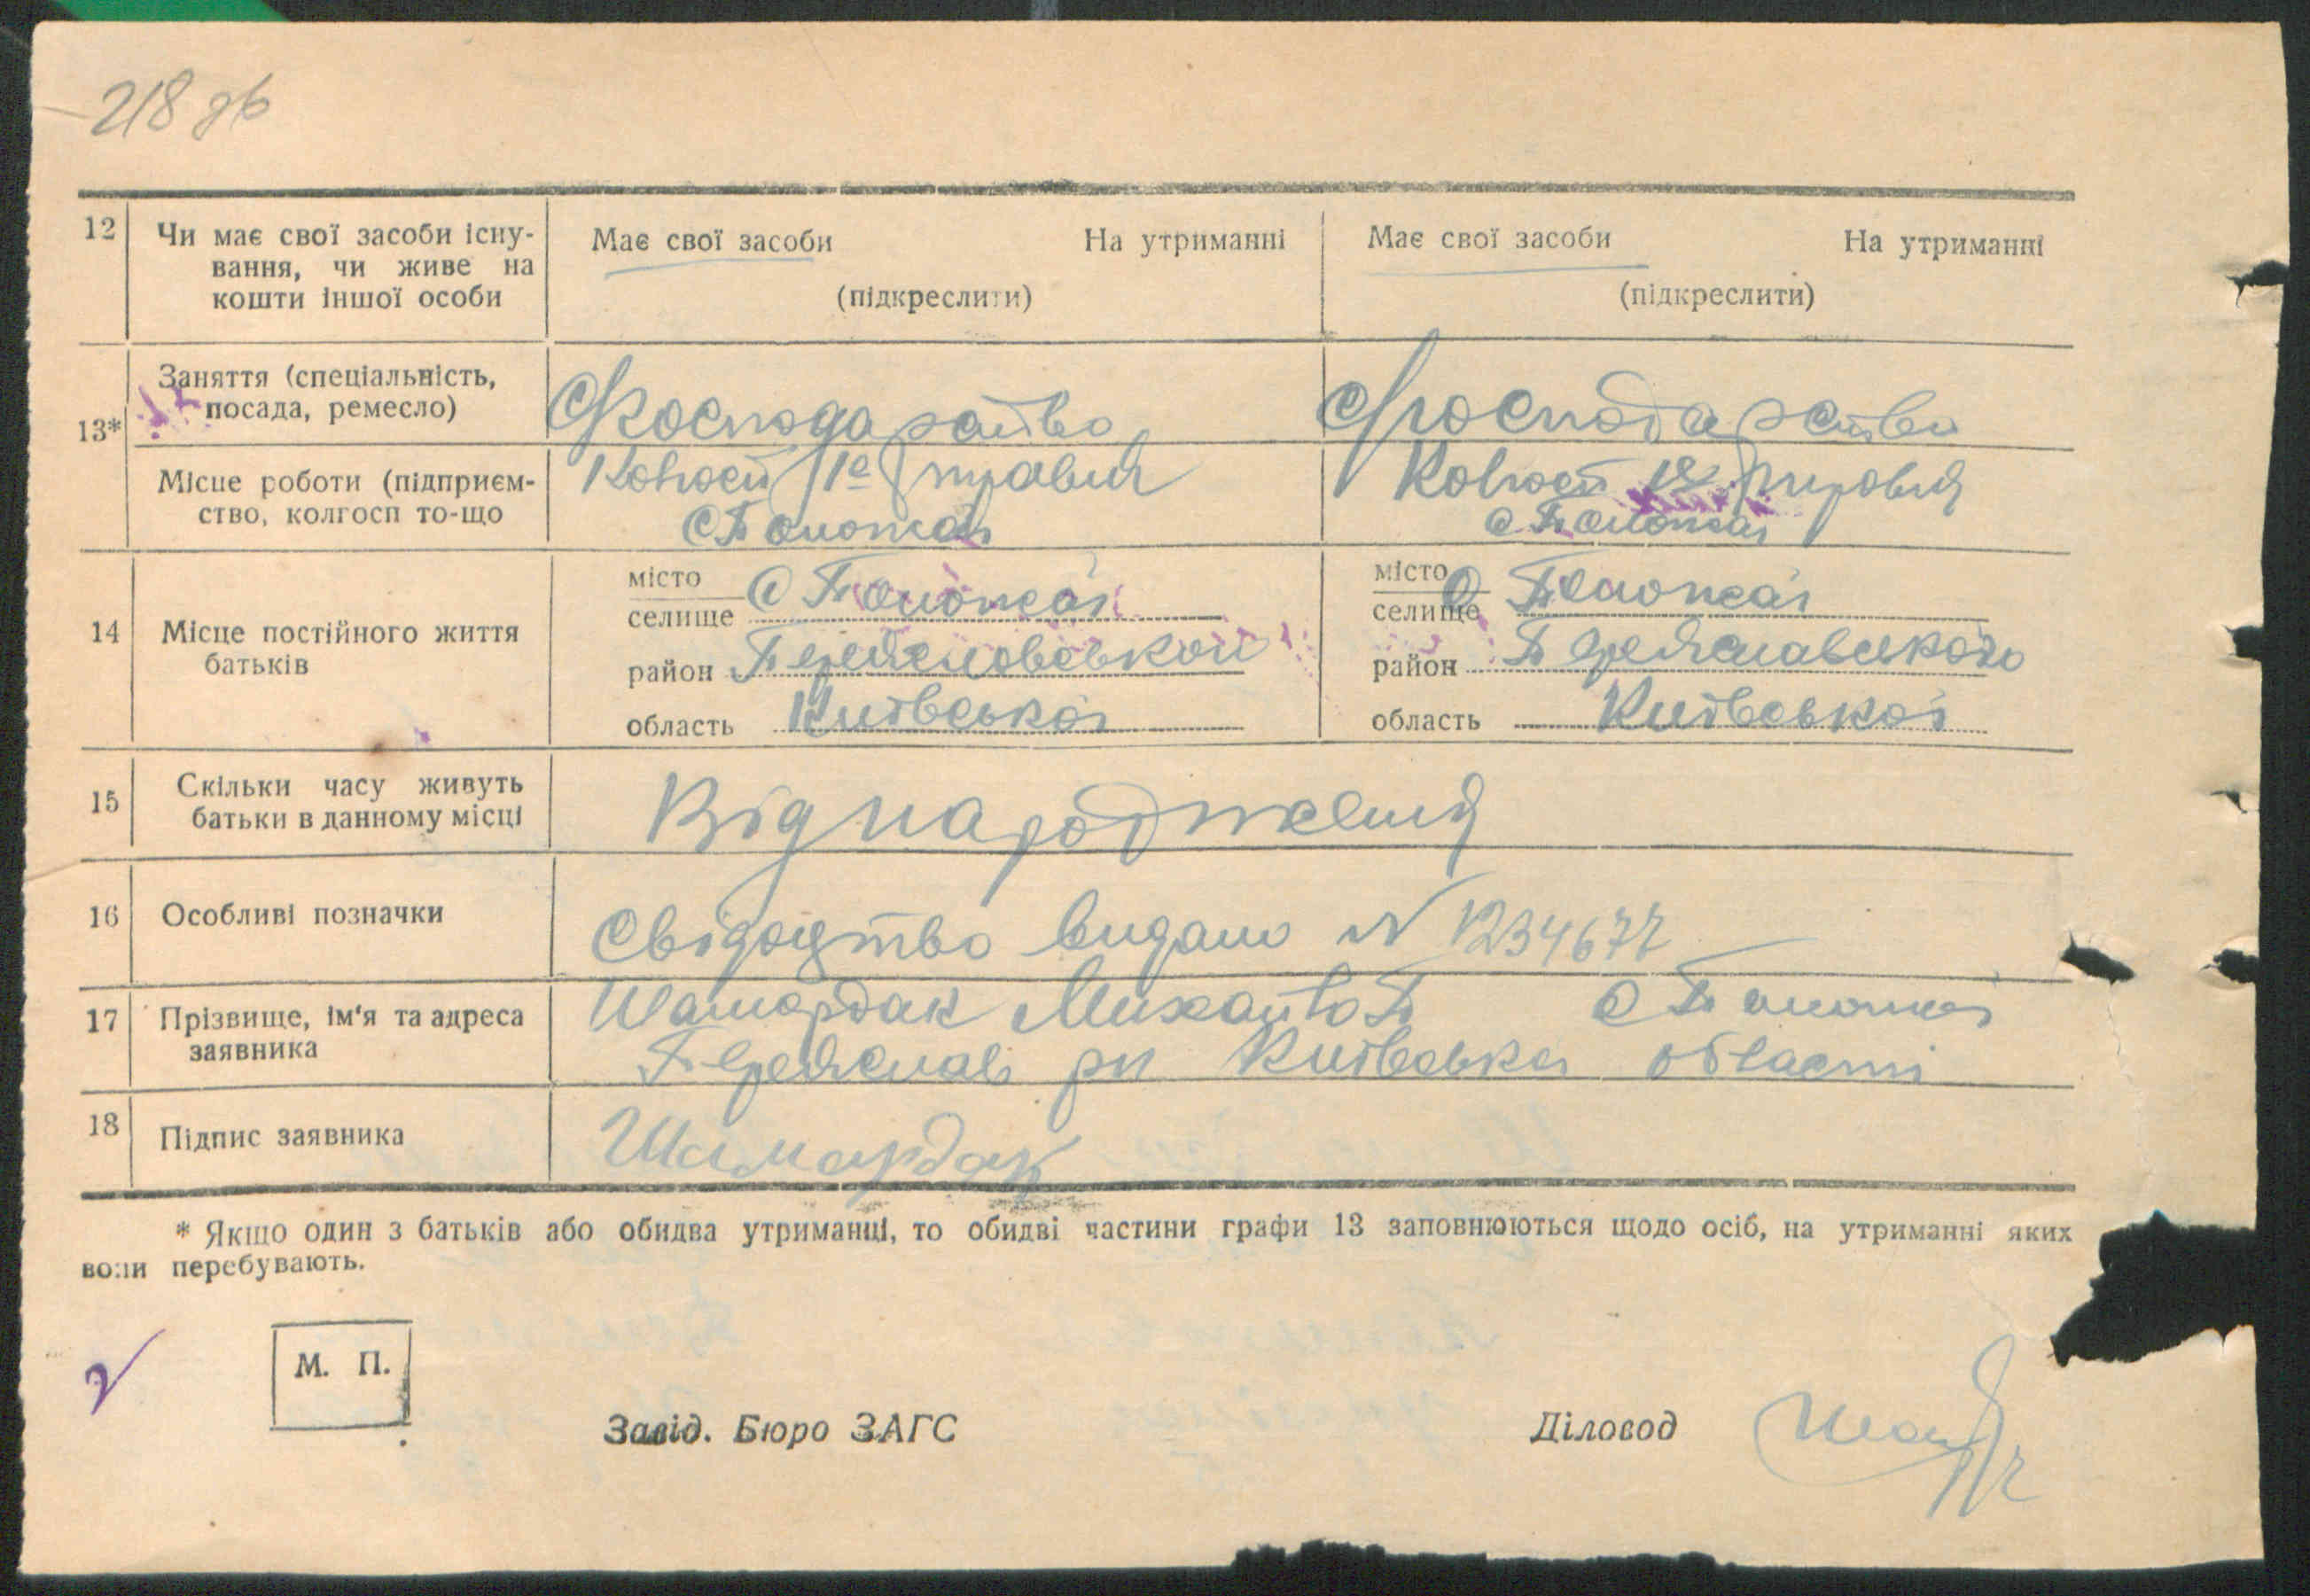 218 зв
12 Чи має свої засоби існу- Має свої засоби На утриманні Має свої засоби На утриманні
вання, чи живе на
кошти іншої особи (підкреслити) (підкреслити)
Заняття (спеціальність,
13* посада, ремесло) С господарство С господарство
Місце роботи (підприєм- Колгосп 1е травня Колгосп 1е травня
ство, колгосп то-що
місто с місто с
селище селище
14 Місце постійного життя
батьків район Переяславської район Переяславського
область Київської область Київської
15 Скільки часу живуть Від народження
батьки в данному місці
16 Особливі позначки Свідоцтво видано N 1234677
17 Прізвище, ім'я та адреса Шамардак Михайло П с
заявника Переяслав рн Київська області
18 Підпис заявника Шамардак
* Якщо один з батьків або обидва утриманці, то обидві частини графи 13 заповнюються щодо осіб, на утриманні яких
вони перебувають.
М. П.
Завід. Бюро ЗАГС Діловод